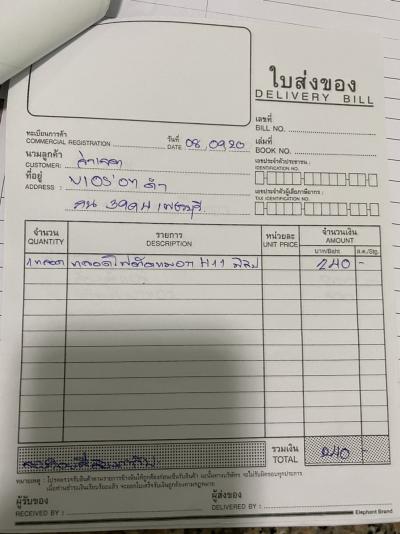 ใบส่งของ
DELIVERY BILL
เลขที่
BILL NO.
ทะเบียนการค้า
COMMERCIAL REGISTRATION
วันที่
DATE 08,0920
เล่มที่
BOOK NO.
นามลูกค้า
CUSTOMER:
เลขประจำตัวประชาชน :
IDENTIFICATION NO.
ที่อยู่
ADDRESS : VIOS'07 ดำ
เลขประจำตัวผู้เสียภาษีอากร :
TAX IDENTIFICATION NO.
จำนวน
QUANTITY
รายการ
DESCRIPTION
หน่วยละ
UNIT PRICE
จำนวนเงิน
AMOUNT
บาท/Baht
ส.ต./Stg.
1 หลอด หลอดไฟตัดหมอก H11 240 -
รวมเงิน
TOTAL 240 -
ผู้รับของ
RECEIVED BY :
ผู้ส่งของ
DELIVERED BY :
Elephant Brand